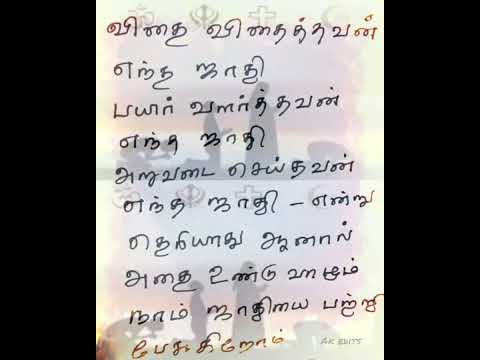 விதை விதைத்தவன்
எந்த ஜாதி
பயிர் வளர்த்தவன்
எந்த ஜாதி
அறுவடை செய்தவன்
எந்த ஜாதி - என்று
தெரியாது ஆனால்
அதை உண்டு வாழும்
நாம் ஜாதியை பற்றி
பேசுகிறோம்
AK EDITS